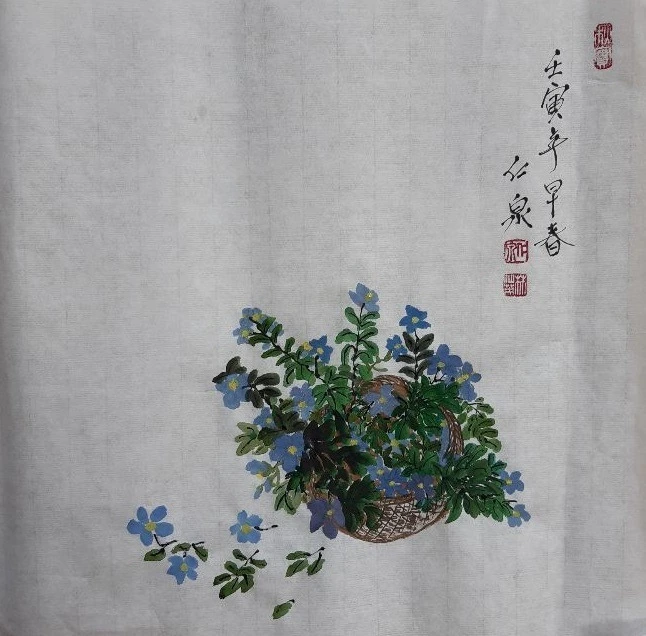 壬寅年早春
仁泉